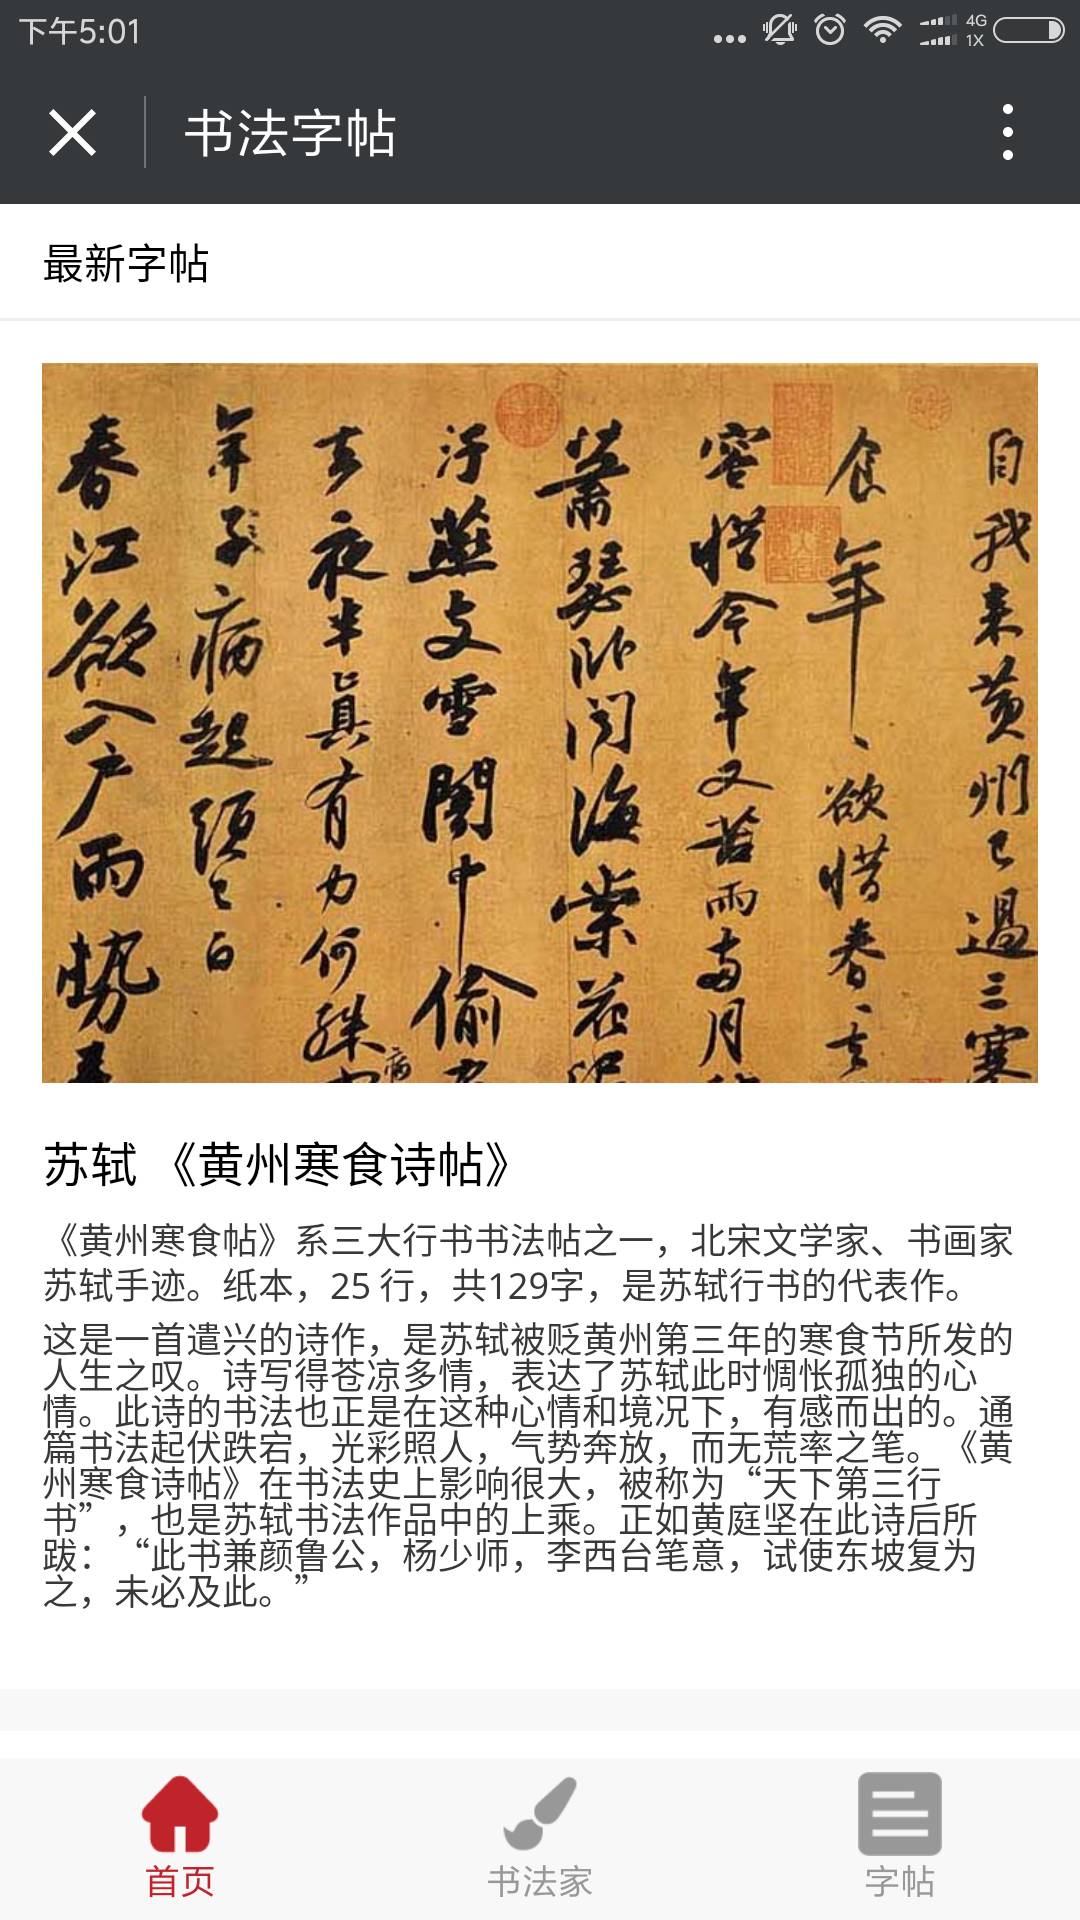 下午5:01
4G
1X
书法字帖
最新字帖
自我来黄州已過三寒
食年、欲惜春、去
容惜今年又苦雨两月
蕭瑟卧闻海棠花泥
汙燕支雪闇中偷
去夜半真有力何殊
病
年子病起頭已白
春江欲入户雨势
苏轼 《黄州寒食诗帖》
《黄州寒食帖》系三大行书书法帖之一，北宋文学家、书画家
苏轼手迹。纸本，25 行，共129字，是苏轼行书的代表作。
这是一首遣兴的诗作，是苏轼被贬黄州第三年的寒食节所发的
人生之叹。诗写得苍凉多情，表达了苏轼此时惆怅孤独的心
情。此诗的书法也正是在这种心情和境况下，有感而出的。通
篇书法起伏跌宕，光彩照人，气势奔放，而无荒率之笔。《黄
州寒食诗帖》在书法史上影响很大，被称为“天下第三行
书”，也是苏轼书法作品中的上乘。正如黄庭坚在此诗后所
跋：“此书兼颜鲁公，杨少师，李西台笔意，试使东坡复为
之，未必及此。”
首页
书法家
字帖